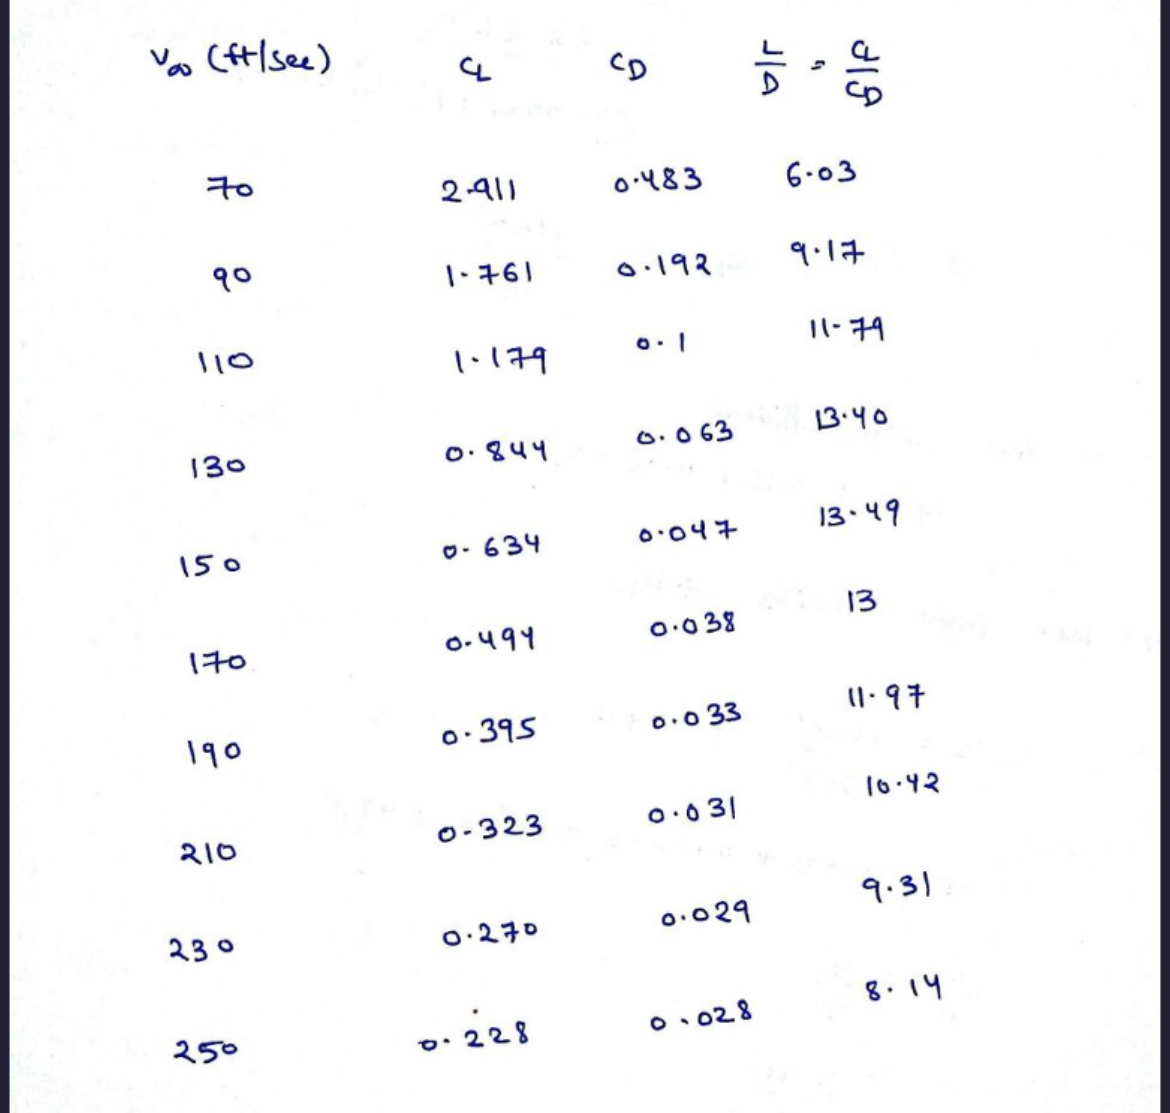 V∞ (ft/sec) CL CD L/D = CL/CD
70 2.911 0.483 6.03
90 1.761 0.192 9.17
110 1.179 0.1 11.79
130 0.844 0.063 13.40
150 0.634 0.047 13.49
170 0.494 0.038 13
190 0.395 0.033 11.97
210 0.323 0.031 10.42
230 0.270 0.029 9.31
250 0.228 0.028 8.14